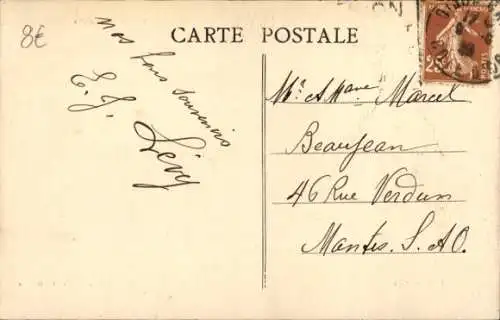 8€
CARTE POSTALE
nos bons souvenirs
E. J.
Lévy
Mr & Mme Marcel
Beaujean
46 Rue Verdun
Mantes. S. & O.